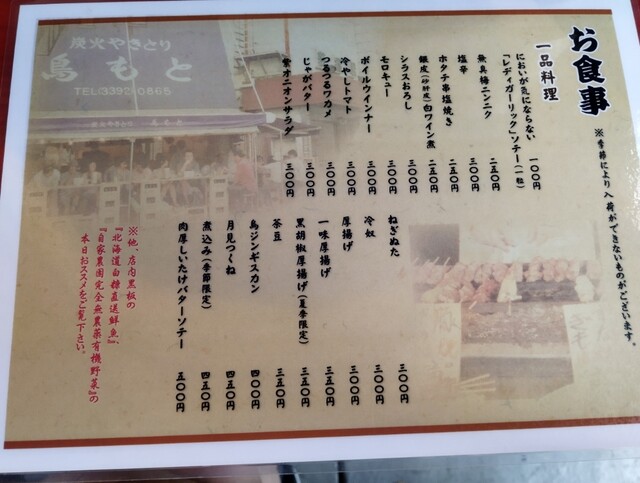 お食事
※季節により入荷ができないものがございます。
一品料理
においが気にならない
「レディガーリック」ソテー（一粒） 一〇〇円
無臭梅ニンニク 二五〇円
塩辛 三〇〇円
ホタテ串塩焼き 二五〇円
銀皮（砂肝皮）白ワイン煮 二五〇円
シラスおろし 三〇〇円
モロキュー 三〇〇円
ボイルウインナー 三〇〇円
冷やしトマト 三〇〇円
つるつるワカメ 三〇〇円
じゃがバター 三〇〇円
紫オニオンサラダ 三〇〇円
ねぎぬた 三〇〇円
冷奴 三〇〇円
厚揚げ 三〇〇円
一味厚揚げ 三五〇円
黒胡椒厚揚げ（夏季限定） 三五〇円
茶豆 三五〇円
鳥ジンギスカン 四〇〇円
月見つくね 四五〇円
煮込み（季節限定） 四五〇円
肉厚しいたけバターソテー 五〇〇円
※他、店内黒板の
『北海道白糠直送鮮魚』、
『自家農園完全無農薬有機野菜』の
本日おススメをご覧下さい。
炭火やきとり
鳥もと
TEL:3392-0865